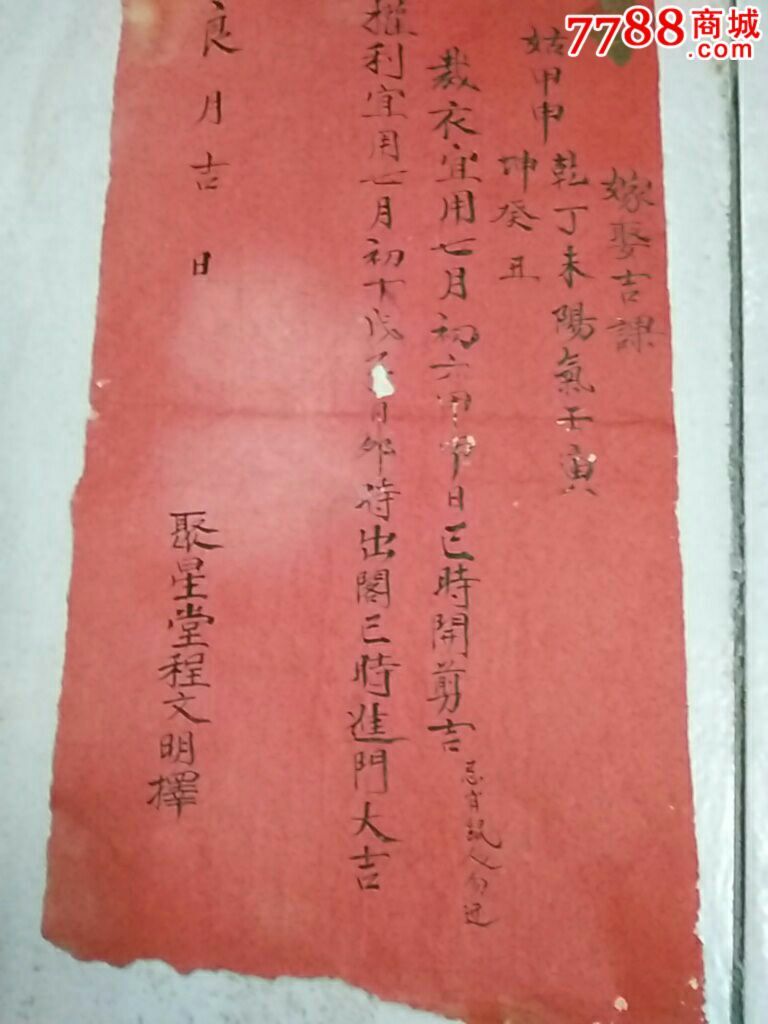 7788商城
.com
嫁娶吉課
姑甲申乾丁未陽氣壬寅
坤癸丑
裁衣宜用七月初六甲申日巳時開剪吉
忌 鼠人勿近
擇利宜用七月初十戊子日卯時出閣巳時進門大吉
良月吉日
聚星堂程文明擇